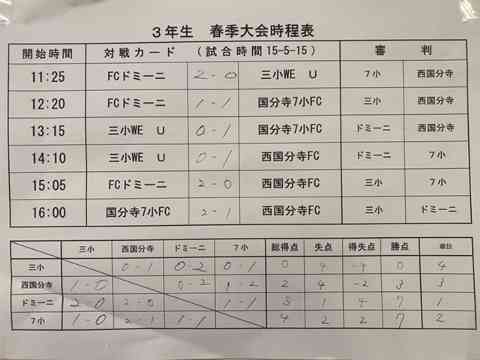 3年生　春季大会時程表
開始時間 対戦カード （試合時間15-5-15） 審判
11:25 FCドミーニ 2-0 三小WE U 7小 西国分寺
12:20 FCドミーニ 1-1 国分寺7小FC 三小 西国分寺
13:15 三小WE U 0-1 国分寺7小FC ドミーニ 西国分寺
14:10 三小WE U 0-1 西国分寺FC ドミーニ 7小
15:05 FCドミーニ 2-0 西国分寺FC 三小 7小
16:00 国分寺7小FC 2-1 西国分寺FC 三小 ドミーニ
三小 西国分寺 ドミーニ 7小 総得点 失点 得失点 勝点 順位
三小 0-1 0-2 0-1 0 4 -4 0 4
西国分寺 1-0 0-2 1-2 2 4 -2 3 3
ドミーニ 2-0 2-0 1-1 1 4 7 1
7小 1-0 2-1 1-1 4 2 2 7 2